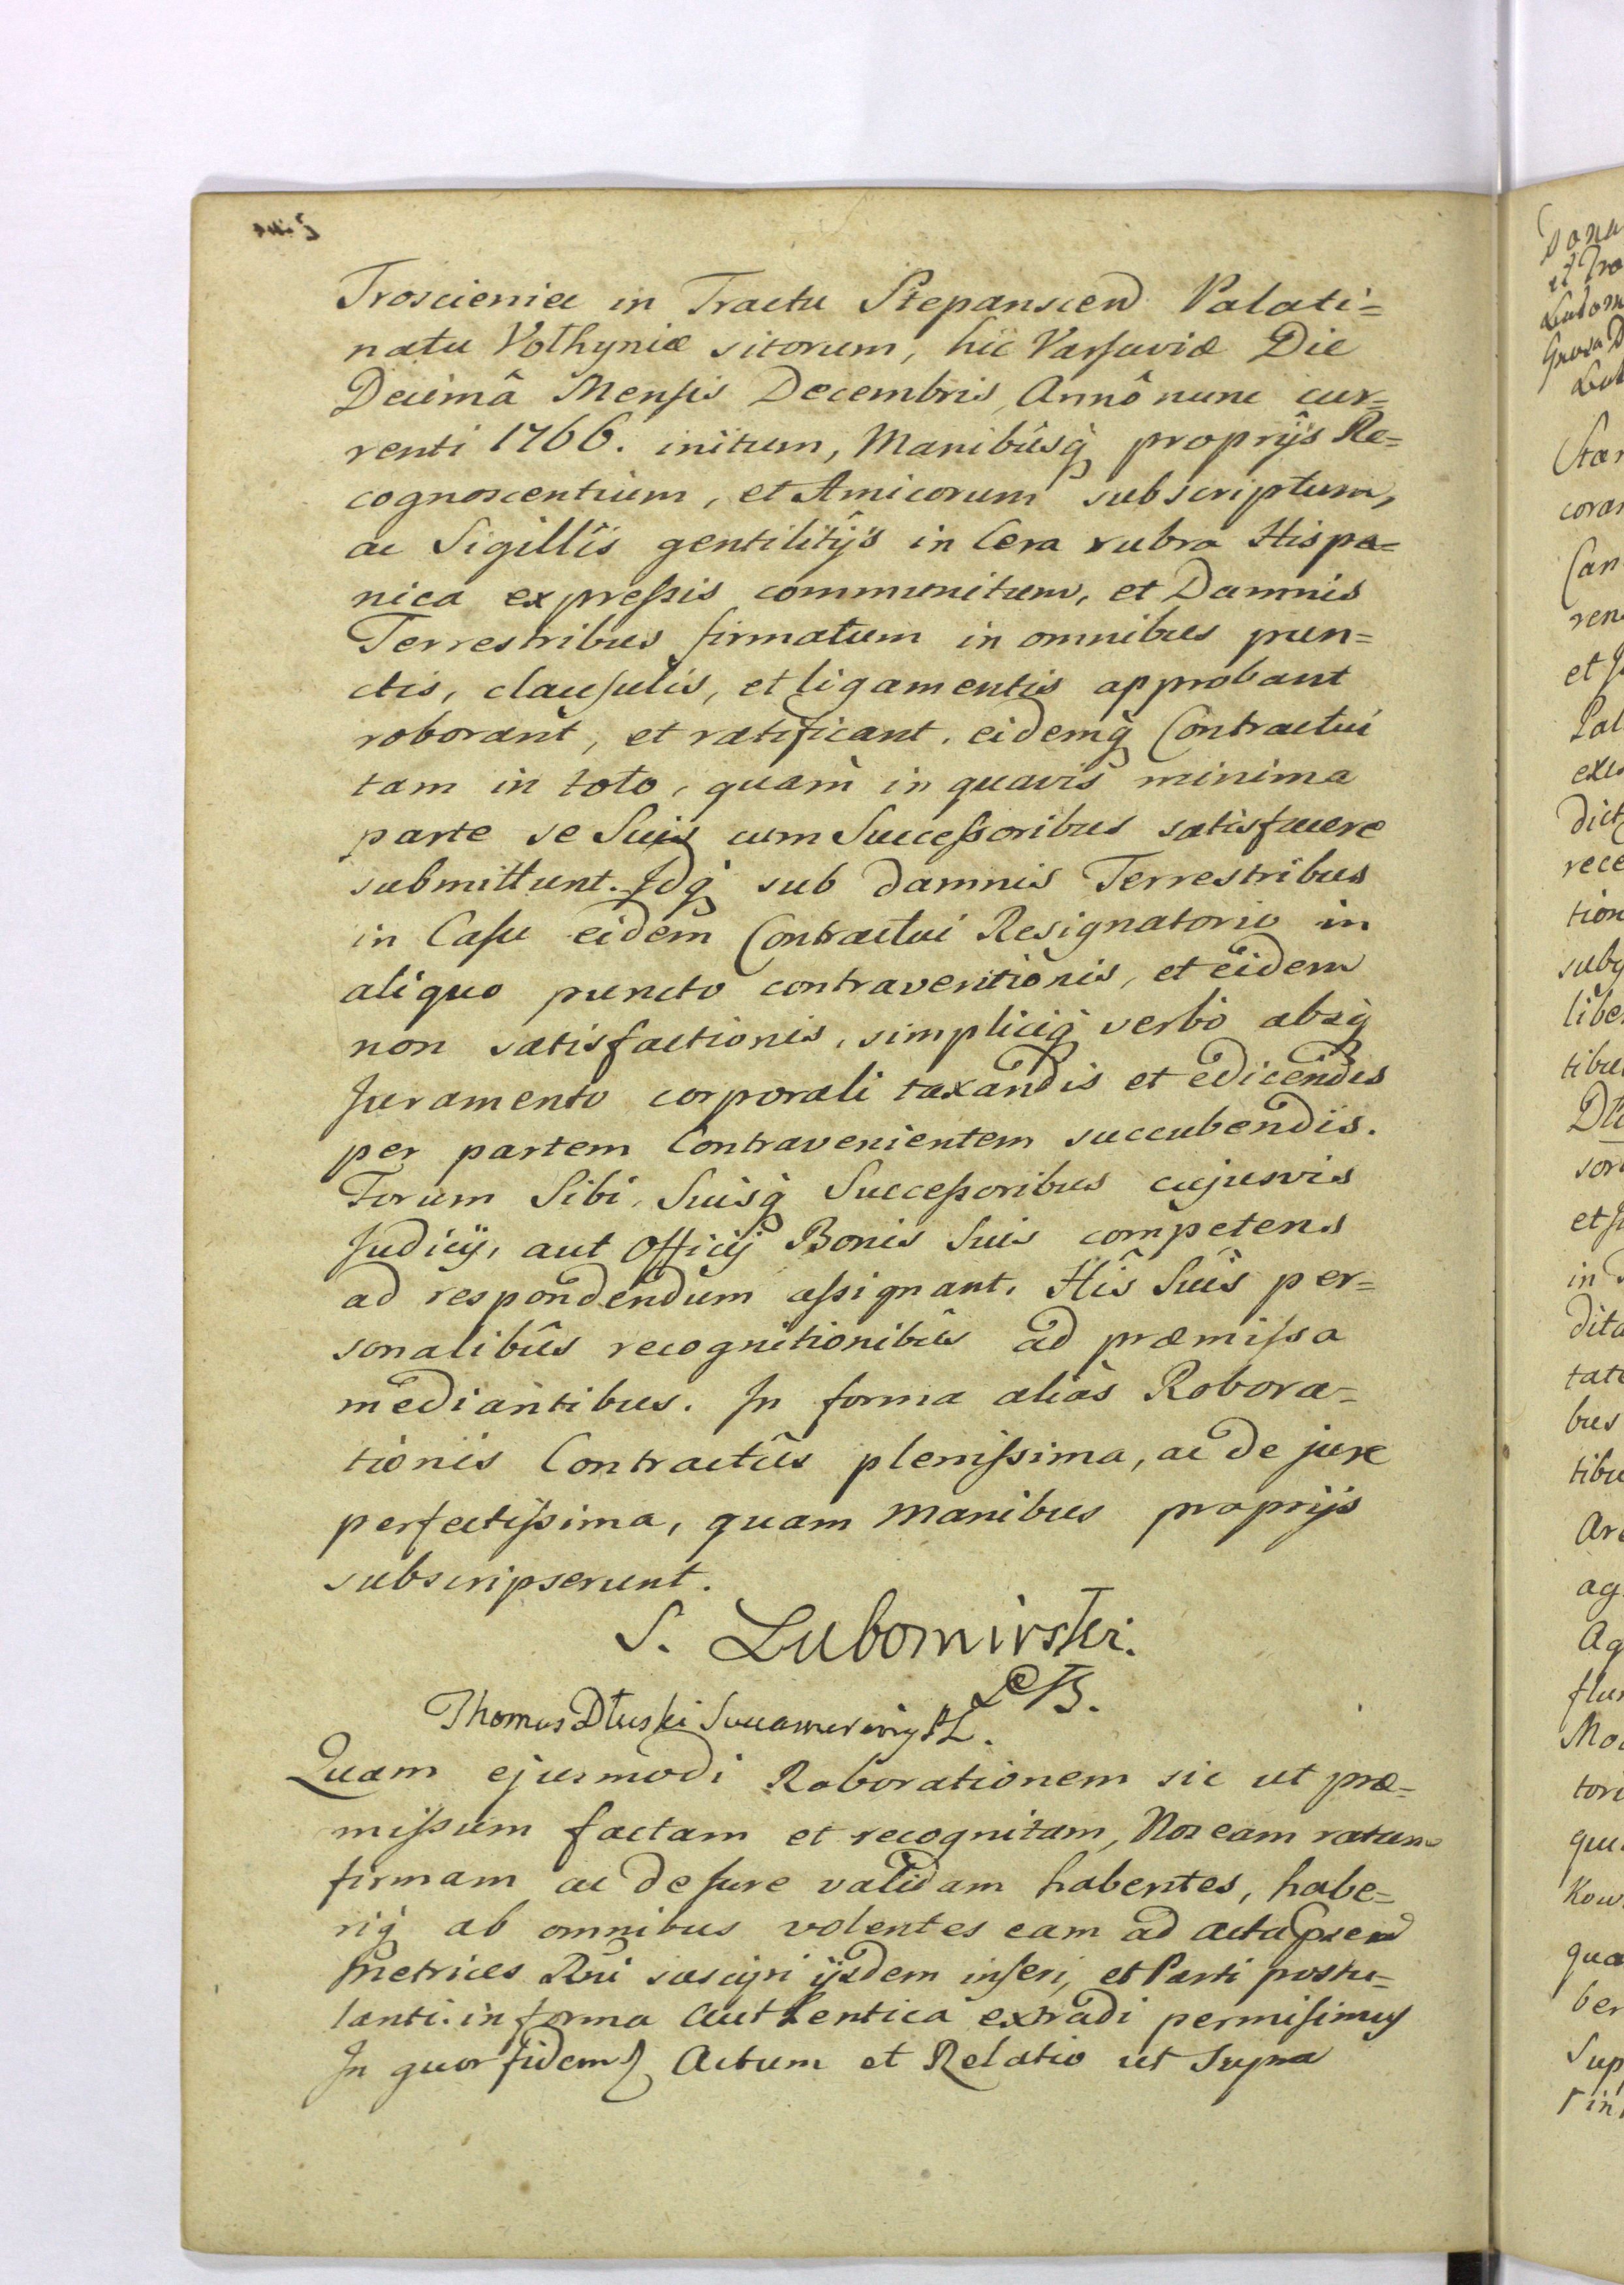 Troscieniec in Tractu Stepanscen Palati=
natu Volhyniæ sitorum, hic Varsaviæ Die
Decimâ Mensis Decembris, Annô nunc cur=
renti 1766. initum, Manibûsq́ proprijs Re=
cognoscentium, et Amicorum subscriptum,
ac Sigillîs gentilitijs in Cera rubra Hispa=
nica expressis communitum, et Damnis
Terrestribus firmatum in omnibus pun=
ctis, clausulis, et ligamentis approbant
roborant, et ratificant. eidemq́ Contractui
tam in toto, quam in quavis minima
parte se Suis cum Successoribus satisfacere
submittunt. Idq́ sub damnis Terrestribus
in Casu eidem Contractui Resignatorio in
aliquo puncto contraventionis, et eidem
non satisfactionis, simpliciq́ verbo absq́
Juramento corporali taxandis et edicendis
per partem Contravenientem succubendis.
Forum Sibi, Suisq́ Successoribus cujusvis
Judicij, aut Officij Bonis Suis competens
ad respondendum assignant. Hîs Suîs per=
sonalibûs recognitionibûs ad præmissa
mediantibus. In forma aliàs Robora=
tionis Contractûs plenissima, ac de jure
perfectissima, quam Manibus proprijs
subscripserunt.
S. Lubomirski.
Thomas Dłuski
Quam ejusmodi Roborationem sic ut præ=
missum factam et recognitam, Nos eam ratam
firmam ac de Jure validam habentes, habe=
riq́ ab omnibus volentes eam ad acta præsen
Metrices Rni suscipi ijsdem inseri, et Parti postu=
lanti in forma authentica extradi permisimus
In quor fidem Actum et Relatio ut Supra